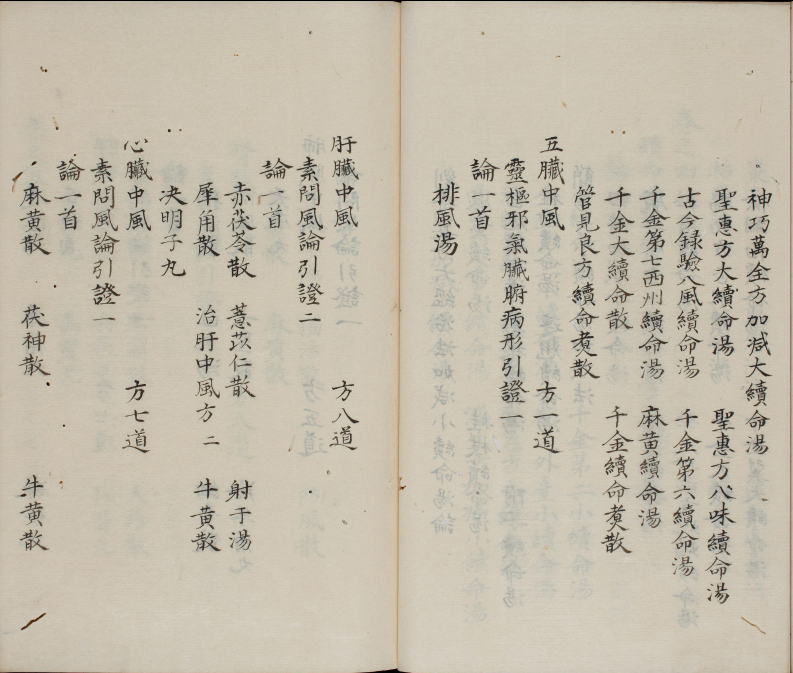 神巧萬全方加减大續命湯
聖惠方大續命湯 聖惠方八味續命湯
古今録驗八風續命湯 千金第六續命湯
千金第七西州續命湯 麻黄續命湯
千金大續命散 千金續命煑散
管見良方續命煑散
五臟中風 方一道
靈樞邪氣臟腑病形引證一
論一首
排風湯
肝臟中風 方八道
素問風論引證二
論一首
赤茯苓散 薏苡仁散 射干湯
犀角散 治肝中風方二 牛黄散
决明子丸
心臟中風 方七道
素問風論引證一
論二首
麻黄散 茯神散 牛黄散